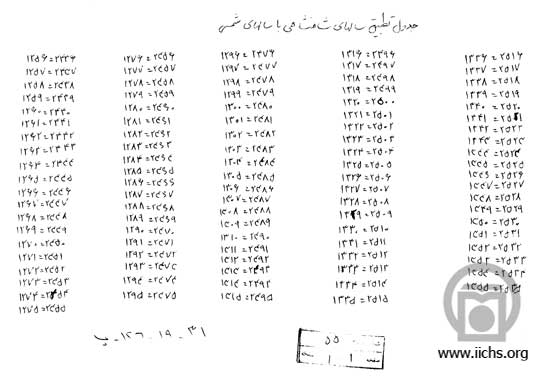 جدول تطبیق سالهای شاهنشاهی با سالهای شمسی
۱۲۵۶=۲۴۳۶
۱۲۵۷=۲۴۳۷
۱۲۵۸=۲۴۳۸
۱۲۵۹=۲۴۳۹
۱۲۶۰=۲۴۴۰
۱۲۶۱=۲۴۴۱
۱۲۶۲=۲۴۴۲
۱۲۶۳=۲۴۴۳
۱۲۶۴=۲۴۴۴
۱۲۶۵=۲۴۴۵
۱۲۶۶=۲۴۴۶
۱۲۶۷=۲۴۴۷
۱۲۶۸=۲۴۴۸
۱۲۶۹=۲۴۴۹
۱۲۷۰=۲۴۵۰
۱۲۷۱=۲۴۵۱
۱۲۷۲=۲۴۵۲
۱۲۷۳=۲۴۵۳
۱۲۷۴=۲۴۵۴
۱۲۷۵=۲۴۵۵
۱۲۷۶=۲۴۵۶
۱۲۷۷=۲۴۵۷
۱۲۷۸=۲۴۵۸
۱۲۷۹=۲۴۵۹
۱۲۸۰=۲۴۶۰
۱۲۸۱=۲۴۶۱
۱۲۸۲=۲۴۶۲
۱۲۸۳=۲۴۶۳
۱۲۸۴=۲۴۶۴
۱۲۸۵=۲۴۶۵
۱۲۸۶=۲۴۶۶
۱۲۸۷=۲۴۶۷
۱۲۸۸=۲۴۶۸
۱۲۸۹=۲۴۶۹
۱۲۹۰=۲۴۷۰
۱۲۹۱=۲۴۷۱
۱۲۹۲=۲۴۷۲
۱۲۹۳=۲۴۷۳
۱۲۹۴=۲۴۷۴
۱۲۹۵=۲۴۷۵
۱۲۹۶=۲۴۷۶
۱۲۹۷=۲۴۷۷
۱۲۹۸=۲۴۷۸
۱۲۹۹=۲۴۷۹
۱۳۰۰=۲۴۸۰
۱۳۰۱=۲۴۸۱
۱۳۰۲=۲۴۸۲
۱۳۰۳=۲۴۸۳
۱۳۰۴=۲۴۸۴
۱۳۰۵=۲۴۸۵
۱۳۰۶=۲۴۸۶
۱۳۰۷=۲۴۸۷
۱۳۰۸=۲۴۸۸
۱۳۰۹=۲۴۸۹
۱۳۱۰=۲۴۹۰
۱۳۱۱=۲۴۹۱
۱۳۱۲=۲۴۹۲
۱۳۱۳=۲۴۹۳
۱۳۱۴=۲۴۹۴
۱۳۱۵=۲۴۹۵
۱۳۱۶=۲۴۹۶
۱۳۱۷=۲۴۹۷
۱۳۱۸=۲۴۹۸
۱۳۱۹=۲۴۹۹
۱۳۲۰=۲۵۰۰
۱۳۲۱=۲۵۰۱
۱۳۲۲=۲۵۰۲
۱۳۲۳=۲۵۰۳
۱۳۲۴=۲۵۰۴
۱۳۲۵=۲۵۰۵
۱۳۲۶=۲۵۰۶
۱۳۲۷=۲۵۰۷
۱۳۲۸=۲۵۰۸
۱۳۲۹=۲۵۰۹
۱۳۳۰=۲۵۱۰
۱۳۳۱=۲۵۱۱
۱۳۳۲=۲۵۱۲
۱۳۳۳=۲۵۱۳
۱۳۳۴=۲۵۱۴
۱۳۳۵=۲۵۱۵
۱۳۳۶=۲۵۱۶
۱۳۳۷=۲۵۱۷
۱۳۳۸=۲۵۱۸
۱۳۳۹=۲۵۱۹
۱۳۴۰=۲۵۲۰
۱۳۴۱=۲۵۲۱
۱۳۴۲=۲۵۲۲
۱۳۴۳=۲۵۲۳
۱۳۴۴=۲۵۲۴
۱۳۴۵=۲۵۲۵
۱۳۴۶=۲۵۲۶
۱۳۴۷=۲۵۲۷
۱۳۴۸=۲۵۲۸
۱۳۴۹=۲۵۲۹
۱۳۵۰=۲۵۳۰
۱۳۵۱=۲۵۳۱
۱۳۵۲=۲۵۳۲
۱۳۵۳=۲۵۳۳
۱۳۵۴=۲۵۳۴
۱۳۵۵=۲۵۳۵
۳۱-۱۹-۱۲۶-پ
www.iichs.org